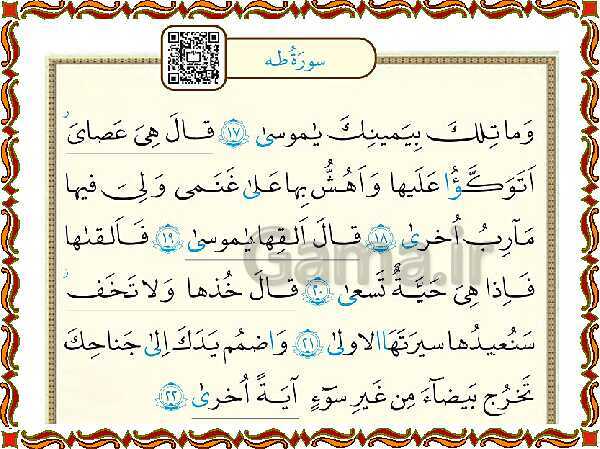 سورَةُ طه
وَما تِلكَ بِيَمينِكَ يٰموسىٰ ﴿١٧﴾ قالَ هِیَ عَصایَ
اَتَوَكَّؤُا عَلَيها وَ اَهُشُّ بِها عَلىٰ غَنَمی وَ لِیَ فيها
مَآرِبُ اُخرىٰ ﴿١٨﴾ قالَ اَلقِها يٰموسىٰ ﴿١٩﴾ فَاَلقٰىها
فَاِذا هِیَ حَيَّةٌ تَسعىٰ ﴿٢٠﴾ قالَ خُذها وَ لا تَخَف
سَنُعيدُها سيرَتَهَا الاولىٰ ﴿٢١﴾ وَ اضمُم يَدَكَ اِلىٰ جَناحِكَ
تَخرُج بَيضآءَ مِن غَيرِ سوٓءٍ آيَةً اُخرىٰ ﴿٢٢﴾
Gama.ir